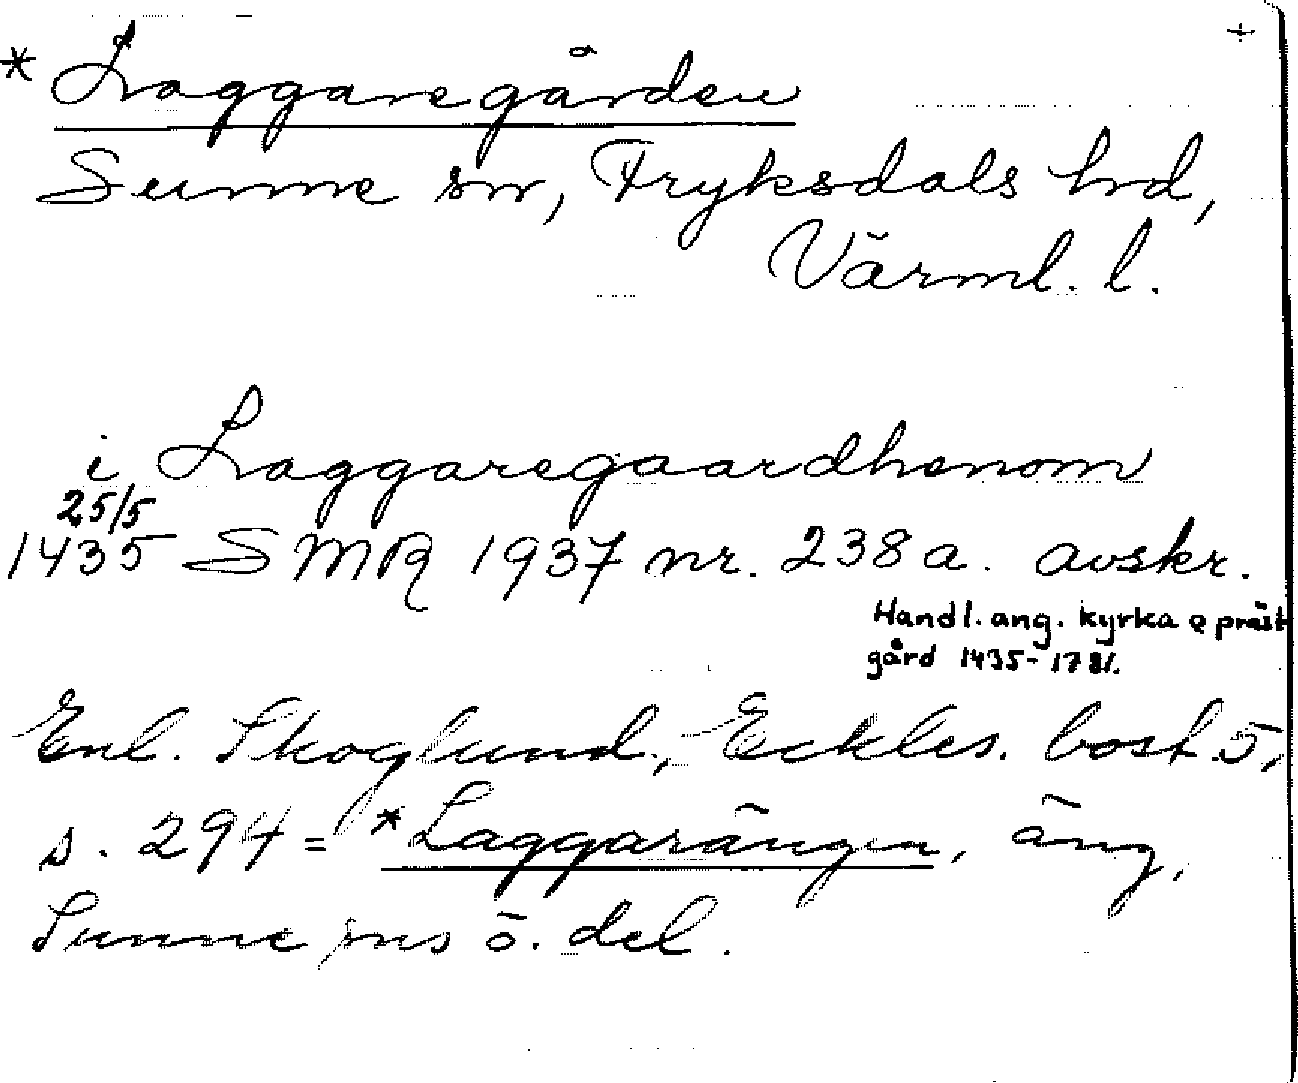 +
* Laggaregården
Sunne sn, Fryksdals hd,
Värml. l.
i Laggaregaardhenom
25/5
1435 SMR 1937 nr. 238a. avskr.
Handl. ang. kyrka o präst
gård 1435-1781.
Enl. Skoglund, Eckles. bost. 5,
s. 294 = *Laggarängen, äng,
Sunne sns ö. del.